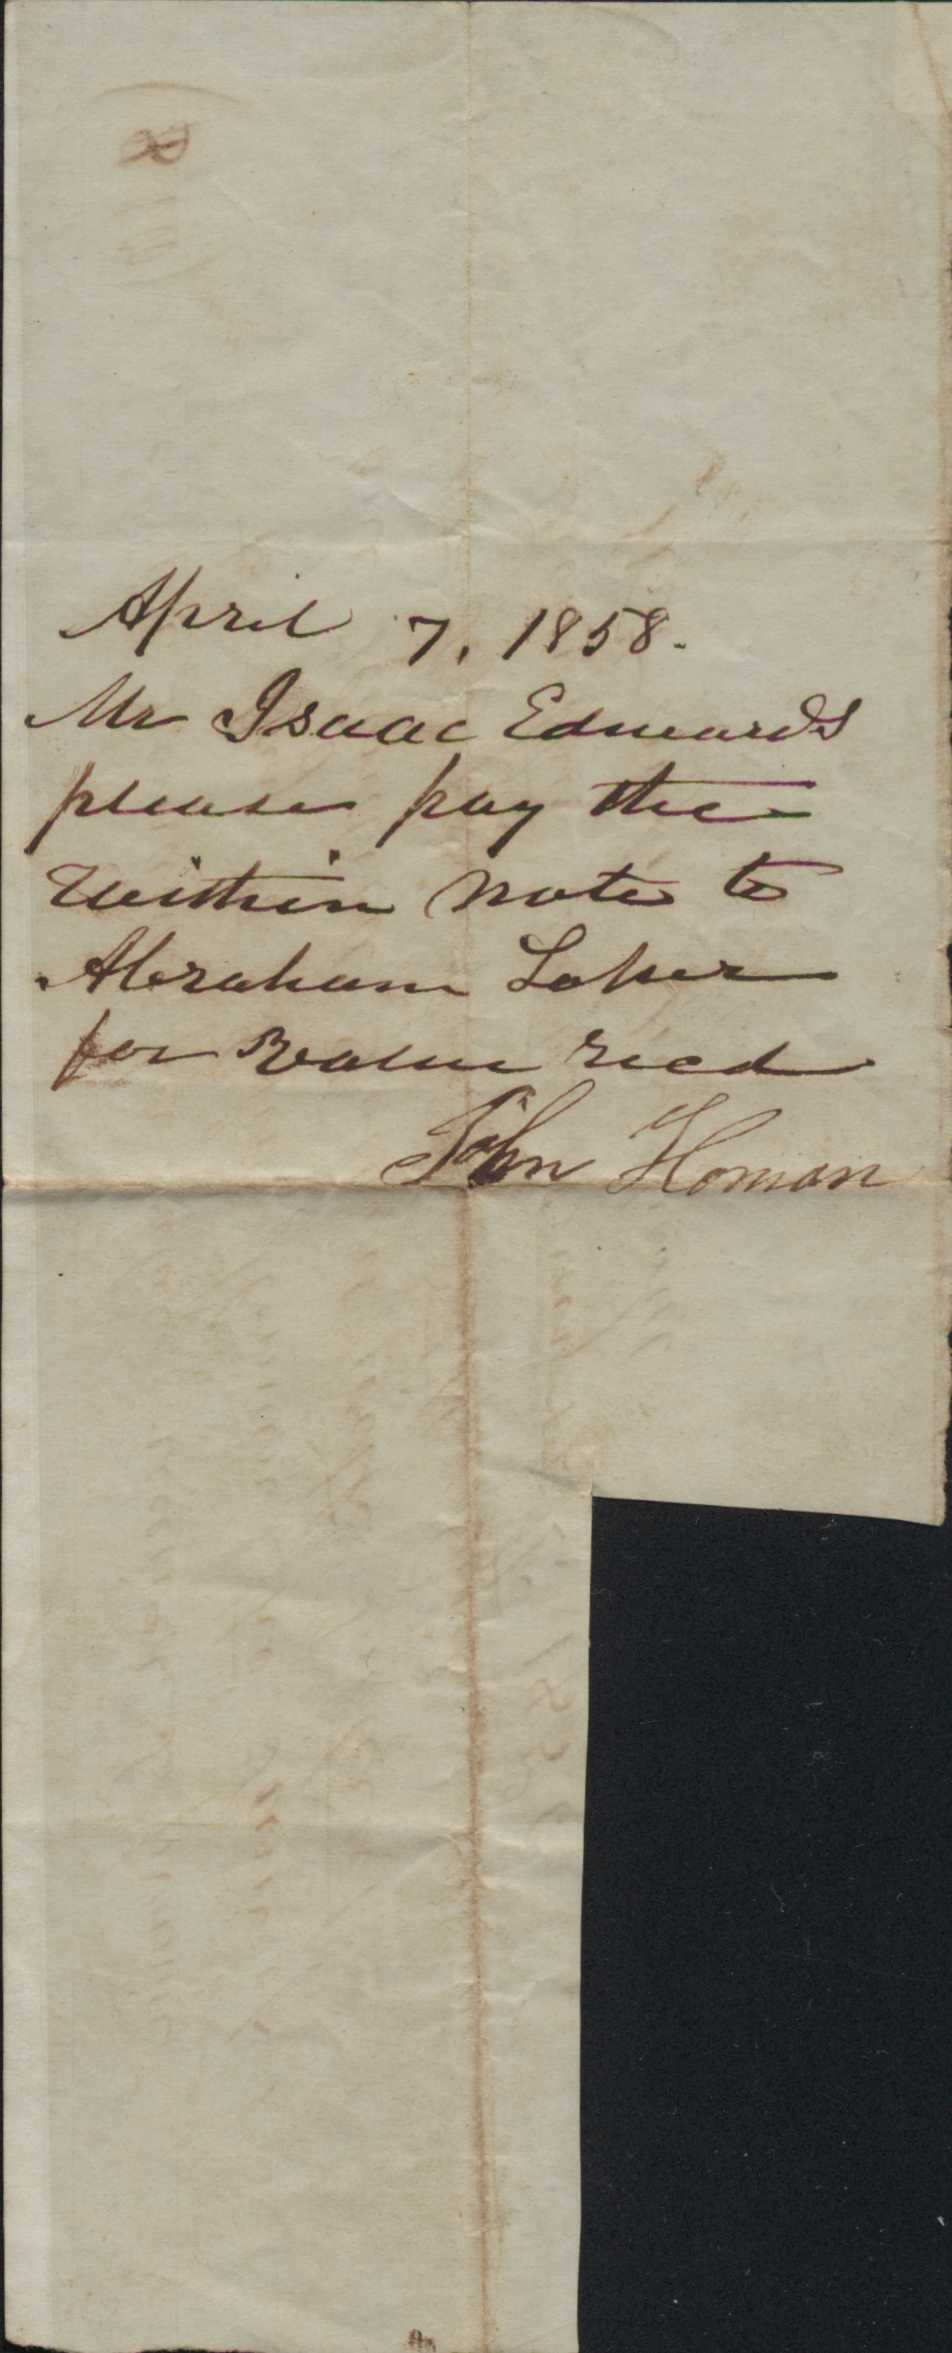 April 7, 1858.
Mr Isaac Edwards
please pay the
within note to
Abraham Loper
for value recd
John Homan